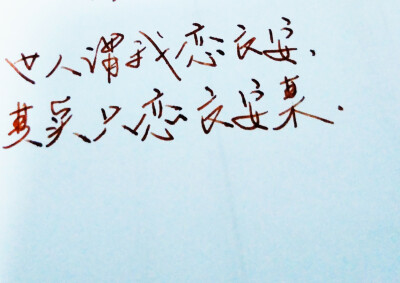 世人谓我恋长安,
其实只恋长安某.